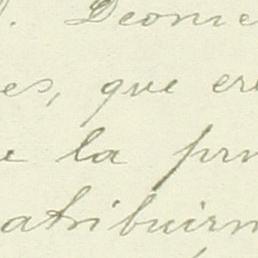 Deonie
es, que ere
e la prn
atribuirn